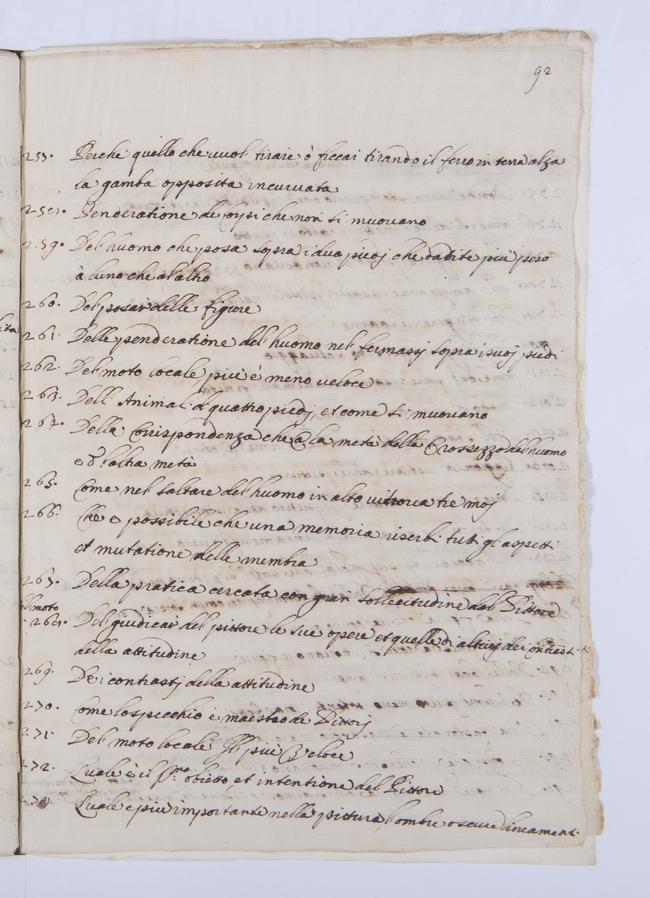 92
257. Perche quello che vuol tirare ò ficcar tirando il ferro in terra alza
la gamba opposita incurvata
258. Ponderatione de corpi che non si muovano
259. Del huomo che posa sopra i dua piedj che dadi te più peso
à l'uno che al altro
260. Del posar delle figure
261. Delle ponderatione del huomo nel fermarsj sopra i suoj piedi
262. Del moto locale, più è meno veloce
263. Dell Animal di quattro piedj, et come si muovano
264. Della Corispondenza che à la metà della Grossezza del huomo
cō l'altra metà
265. Come nel saltare del huomo in alto vi trova tre moj
266. Che è possibile che una memoria riserbi tutti gl aspetti
et mutatione delle membra
267. Della pratica cercata con gran sollecitudine dal Pittore
268. Del giudicar del pittore le sue opere et quelle di altruj dei contrast
della attitudine
269. De i contrastj della attitudine
270. Come lo specchio è maestro de Pittorj
271. Del moto locale più veloce
272. Quale è il p.mo obietto, et intentione del Pittore
Quale e più importante nella pictura, l'ombre o suoe lineamentj